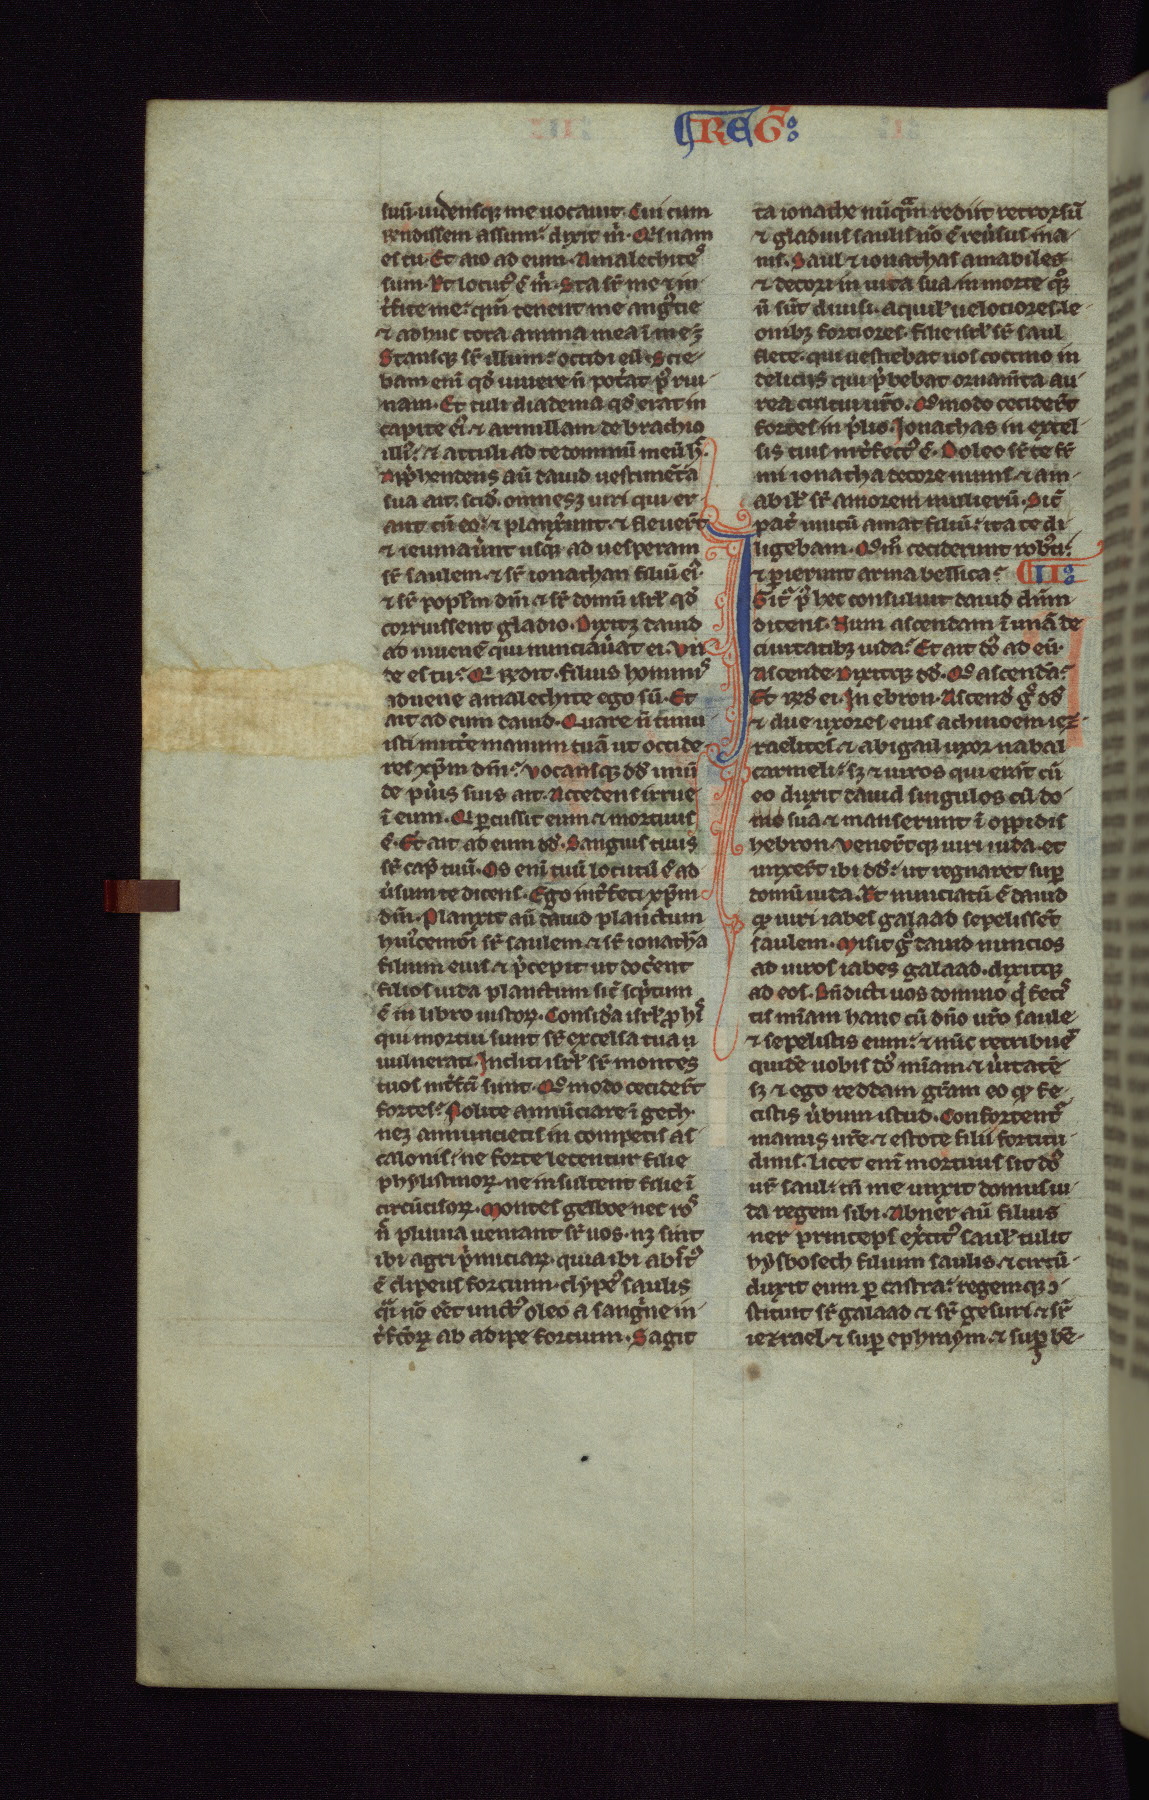 REG
suū·uidensq; me uocauit·Cui cum
rendissem assum· dixit m̄·Qisnam
es tu·Et aio ad eum·Amalechites
sum·Et locutꝰ ē m̄·Sta sr̄ me ⁊ in
t̄fice me· qm̄ tenent me angꝰtie
⁊ adhuc tota anima mea ī me ē
Stansq; sr̄ illum· occidi eū·Scie-
bam eni qd̄ uiuere n̄ pot̄at p̄ rui-
nam·Et tuli diadema qd̄ erat in
capite eiꝰ ⁊ armillam de brachio
illiꝰ· ⁊ attuli ad te dominū meū h̄·
App̄hendens aū dauid uestimēta
sua ait· scid̄· omnesq; uiri qui er-
ant cū eo· ⁊ planx̄unt· ⁊ fleuer̄t
⁊ ieiunau̇nt usq; ad uesperam
sr̄ saulem·⁊ sr̄ ionathan filiū eiꝰ
⁊ sr̄ popl̄m dn̄i ⁊ sr̄ domū isrl̄ qd̄
corruissent gladio·Dixitq; dauid
ad iuuenē qui nunciau̇at ei·Vn-
de es tu· Qi r̄ndit·filius hominis
aduene amalechite ego sū·Et
ait ad eum dauid·Quare n̄ timu
isti mitt̄e manum tuā ut occide-
res xp̄m dn̄i· Vocansq; dd̄ unū
de pūis suis ait·Accedens irrue
ī eum·Qi ꝑcussit eum ⁊ mortuus
ē·Et ait ad eum dd̄·Sanguis tuus
sr̄ cap̄ tuū·Os eni tuū locutū ē ad
ūsum te dicens·Ego int̄feci xp̄m
dn̄i·Planxit aū dauid planctum
huꝰcemōi sr̄ saulem·⁊ sr̄ ionatha
filium eius ⁊ p̄cepit ut doc̄ent
filios iuda planctum sic̄ sc̄ptum
ē in libro iustoꝝ·Consid̄a isrl̄ ꝓ hiꝰ
qui mortui sunt sr̄ excelsa tua u
uulnerati·Incliti isrl̄ sr̄ montes
tuos int̄fc̄i sunt·Qōmodo cecider̄t
fortes· Nolite annūciare ī gech·
neq; annuncietis in competis as
calonis·ne forte letentur filie
phylistinoꝝ·ne insultent filie ī
circūcisoꝝ·Montes gelboe nec rosꝰ
n̄ pluuia ueniant sr̄ uos·nq; sint
ibi agri p̄miciaꝝ·quia ibi abi̇c̄tꝰ
ē clipeus fortium·clypeꝰ saulis
q̄i nō eēt unctꝰ oleo a sanḡne in-
t̄fc̄oꝝ ab adipe fortium·Sagit
ta ionathe nūq̄m rediit retrorsū
⁊ gladius saulis nō ē reūsus ina-
nis·Saul ⁊ ionathas amabiles
⁊ decori in uita sua·in morte qꝫ
n̄ sūt diuisi·aquil̄ uelociores·le-
onibꝫ fortiores·filie isrl̄ sr̄ saul
flete·qui uestiebat uos coccino in
deliciis qui p̄bebat ornam̄ta au-
rea cultui ur̄o·Qōmodo cecider̄t
fortes in p̄lio·Ionathas in excel
sis tuis int̄fectꝰ ē·Doleo sr̄ te fr̄
mi ionatha decore nimis ⁊ am-
abil̄ sr̄ amorem mulierū·Sic̄
pat̄ unicū amat filiū· ita te di-
ligebam·Qōm̄ ceciderunt robꝰti·
⁊ ꝑierunt arma bellica· II
Igit̄ p̄ hec consuluit dauid dn̄m
dicens·Num ascendam ī unā de
ciuitatibꝫ iuda· Et ait dn̄s ad eū·
Ascende·Dixitq; dd̄·Qō ascendā·
Et r̄nd̄ ei·In ebron·Ascend̄ ḡ dd̄
⁊ due uxores eius achinoem iez-
raelites ⁊ abigail uxor nabal
carmeli· sꝫ ⁊ uiros qui er̄nt cū
eo duxit dauid singulos cū do-
mo sua ⁊ manserunt ī oppidis
hebron·Vener̄tq; uiri iuda·et
unxer̄t ibi dd̄· ut regnaret suꝑ
domū iuda·Et nunciatū ē dauid
qꝫ uiri iabes galaad sepelisser̄t
saulem·Misit ḡ dauid nuncios
ad uiros iabes galaad·dixitq;
ad eos·Bn̄dicti uos domino q̄ fecisꝰ
tis mīam hanc cū dn̄o ur̄o saule
⁊ sepelistis eum· ⁊ nūc retribuet
quidē uobis dn̄s mīam ⁊ ūitatē
sꝫ ⁊ ego reddam gr̄am eo qꝫ fe-
cistis ūbum istud·Confortentꝰ
manus ur̄e ⁊ estote filii fortitu-
dinis·licet eni mortuus sit dn̄s
ur̄ saul· tn̄ me unxit domus iu-
da regem sibi·Abner aū filius
ner princeps ex̄citꝰ saul̄ tulit
hysbosech filium saulis ⁊ circū-
duxit eum ꝑ castra· regemq; ꝯ-
stituit sr̄ galaad ⁊ sr̄ gesuri ⁊ sr̄
iezrael ⁊ suꝑ ephraym·⁊ suꝑ be-